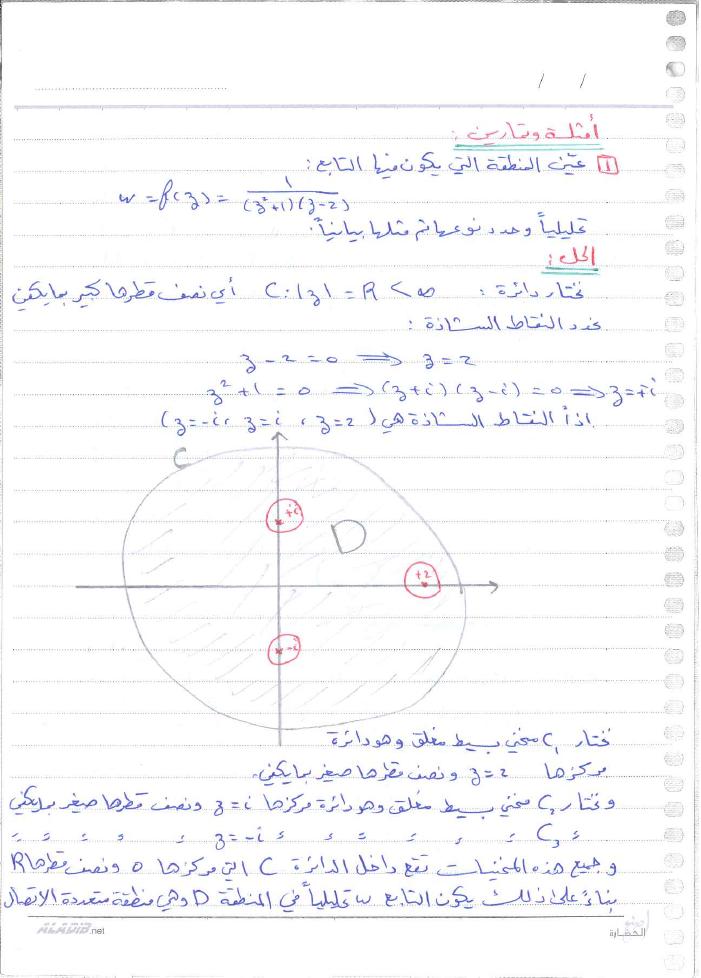 / /
أمثلة وتمارين :
1 عيّن المنطقة التي يكون فيها التابع :
w = f(z) = 1 / (z²+1)(z-2)
تحليلياً وحدد نوعها ثم مثلها بيانياً .
الحل :
نختار دائرة : C : |z| = R < ∞ أي نصف قطرها كبير بما يكفي
نحدد النقاط الشاذة :
z - 2 = 0 ⟹ z = 2
z² + 1 = 0 ⟹ (z+i)(z-i) = 0 ⟹ z = ±i
اذاً النقاط الشاذة هي (z=2 , z=i , z=-i)
C
+i
D
+2
-i
نختار C₁ منحني بسيط مغلق وهو دائرة
مركزها z = 2 ونصف قطرها صغير بما يكفي .
ونختار C₂ منحني بسيط مغلق وهو دائرة مركزها z = i ونصف قطرها صغير بما يكفي
〃 C₃ 〃 〃 〃 〃 〃 z = -i 〃 〃 〃 〃
وجميع هذه المنحنيات تقع داخل الدائرة C التي مركزها 0 ونصف قطرها R
بناءً على ذلك يكون التابع w تحليلياً في المنطقة D وهي منطقة متعددة الاتصال
ALADIB.net
الحضارة